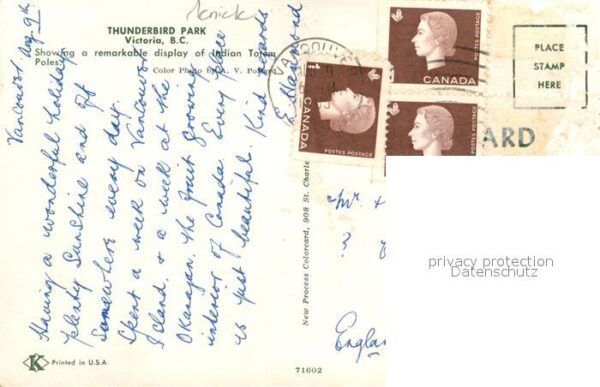 THUNDERBIRD PARK
Victoria, B.C.
Showing a remarkable display of Indian Totem
Poles.
Color Photo by A. V.
Vancouver, Aug 9th
Having a wonderful holiday
plenty Sunshine and off
Somewhere every day.
Spent a week on Vancouver
Island. & a week at the
Okanagan. The fruit growing
interior of Canada. Every place
is just beautiful. Kind regards
E.
New Process Colorcard, 908 St. Charle
K Printed in U.S.A.
71602
VANCOUV
1
CANADA
POSTES POSTAGE
CANADA
POSTES POSTAGE
CANADA
POSTES POSTAGE
PLACE
STAMP
HERE
ARD
Mr. +
3
England
privacy protection
Datenschutz